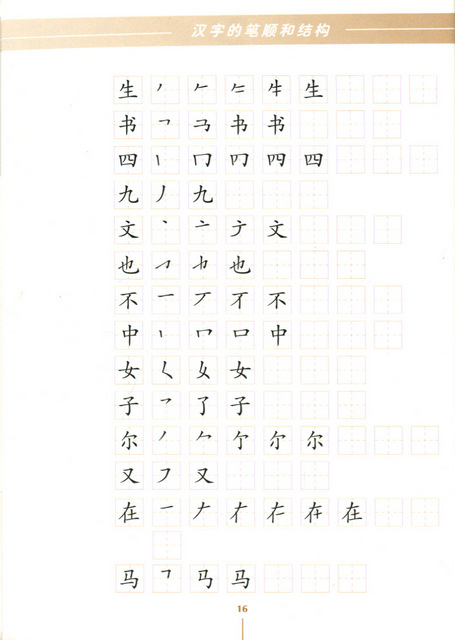 汉字的笔顺和结构
生 丿 生
书 乛 书 书
四 丨 冂 四 四
九 丿 九
文 丶 亠 文
也 也
不 一 丆 不 不
中 丨 冂 口 中
女 女
子 乛 了 子
尔 丿 𠂊 尔 尔
又 フ 又
在 一 𠂇 在 在
马 马 马
16